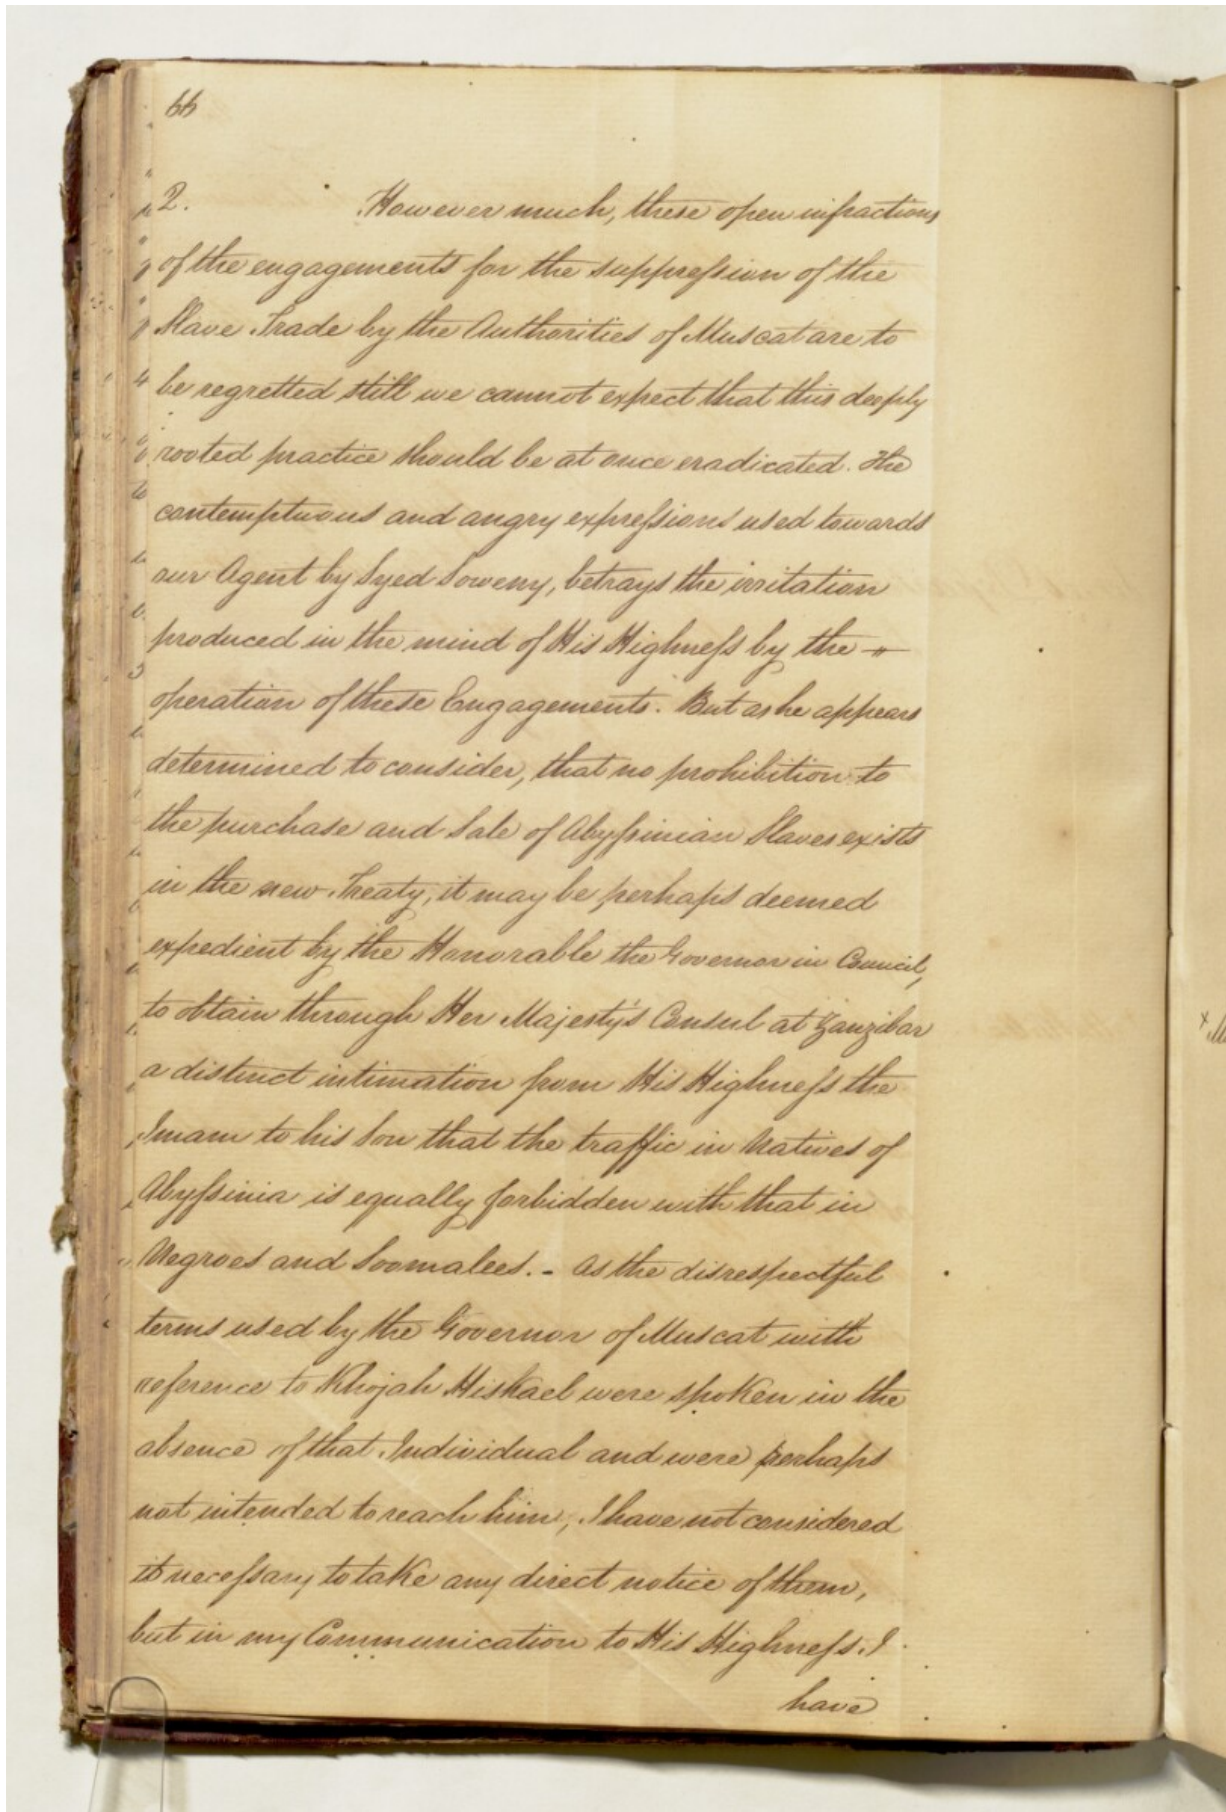 66
2. However much, these open infractions
of the engagements for the suppreſsion of the
Slave Trade by the Authorities of Muscat are to
be regretted still we cannot expect that this deeply
rooted practice should be at once eradicated. The
contemptuous and angry expreſsions used towards
our Agent by Syed Soweny, betrays the irritation
produced in the mind of His Highneſs by the
operation of these Engagements. But as he appears
determined to consider, that no prohibition to
the purchase and Sale of Abyſsinian Slaves exists
in the new Treaty, it may be perhaps deemed
expedient by the Honorable the Governor in Council,
to obtain through Her Majesty's Consul at Zanzibar
a distinct intimation from His Highneſs the
Imam to his Son that the traffic in Natives of
Abyſsinia is equally forbidden with that in
Negroes and Soomalees. - As the disrespectful
terms used by the Governor of Muscat with
reference to Khojah Hiskael were spoken in the
absence of that Individual and were perhaps
not intended to reach him, I have not considered
it neceſsary to take any direct notice of them,
but in my Communication to His Highneſs I
have